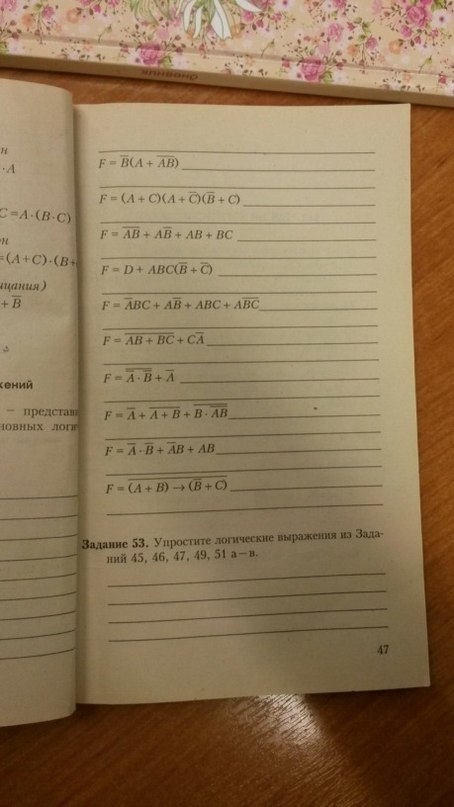 Дневник
н
·A
C=A·(B·C)
он
=(A+C)·(B+
ицания)
+ B̅
жений
– представи
новных логи
F = B̅(A + A̅B̅)
F = (A + C)(A + C̅)(B̅ + C)
F = A̅B̅ + AB̅ + AB + BC
F = D + ABC(B̅ + C̅)
F = A̅BC + AB̅ + ABC + AB̅C̅
F = A̅B̅ ̅+̅ ̅B̅C̅ + CA̅
F = A̿ ̅·̅ B̿ + A̅
F = A̅ + A̅ ̅+̅ ̅B̅ + B̅ ̅·̅ ̅A̅B̅
F = A̅ · B̅ + A̅B + AB
F = (̅A̅ ̅+̅ ̅B̅)̅ → (̅B̅ ̅+̅ ̅C̅)̅
Задание 53. Упростите логические выражения из Зада-
ний 45, 46, 47, 49, 51 а – в.
47